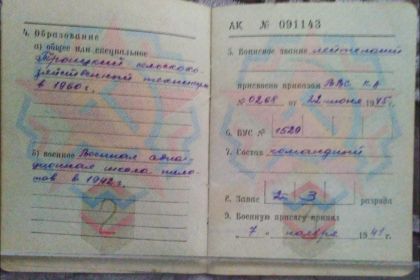 4. Образование
а) общее или специальное
Троицкий сельскохо-
зяйственный техникум
в 1960 г.
б) военное Военная авиа-
ционная школа пило-
тов в 1942 г.
2
АК № 091143
5. Воинское звание лейтенант
присвоено приказом ВВС КА
№ 0268 от 22 июня 1945 г.
6. ВУС № 1529
7. Состав командный
8. Запас 2 3 разряда
9. Военную присягу принял
7 ноября 1941 г.